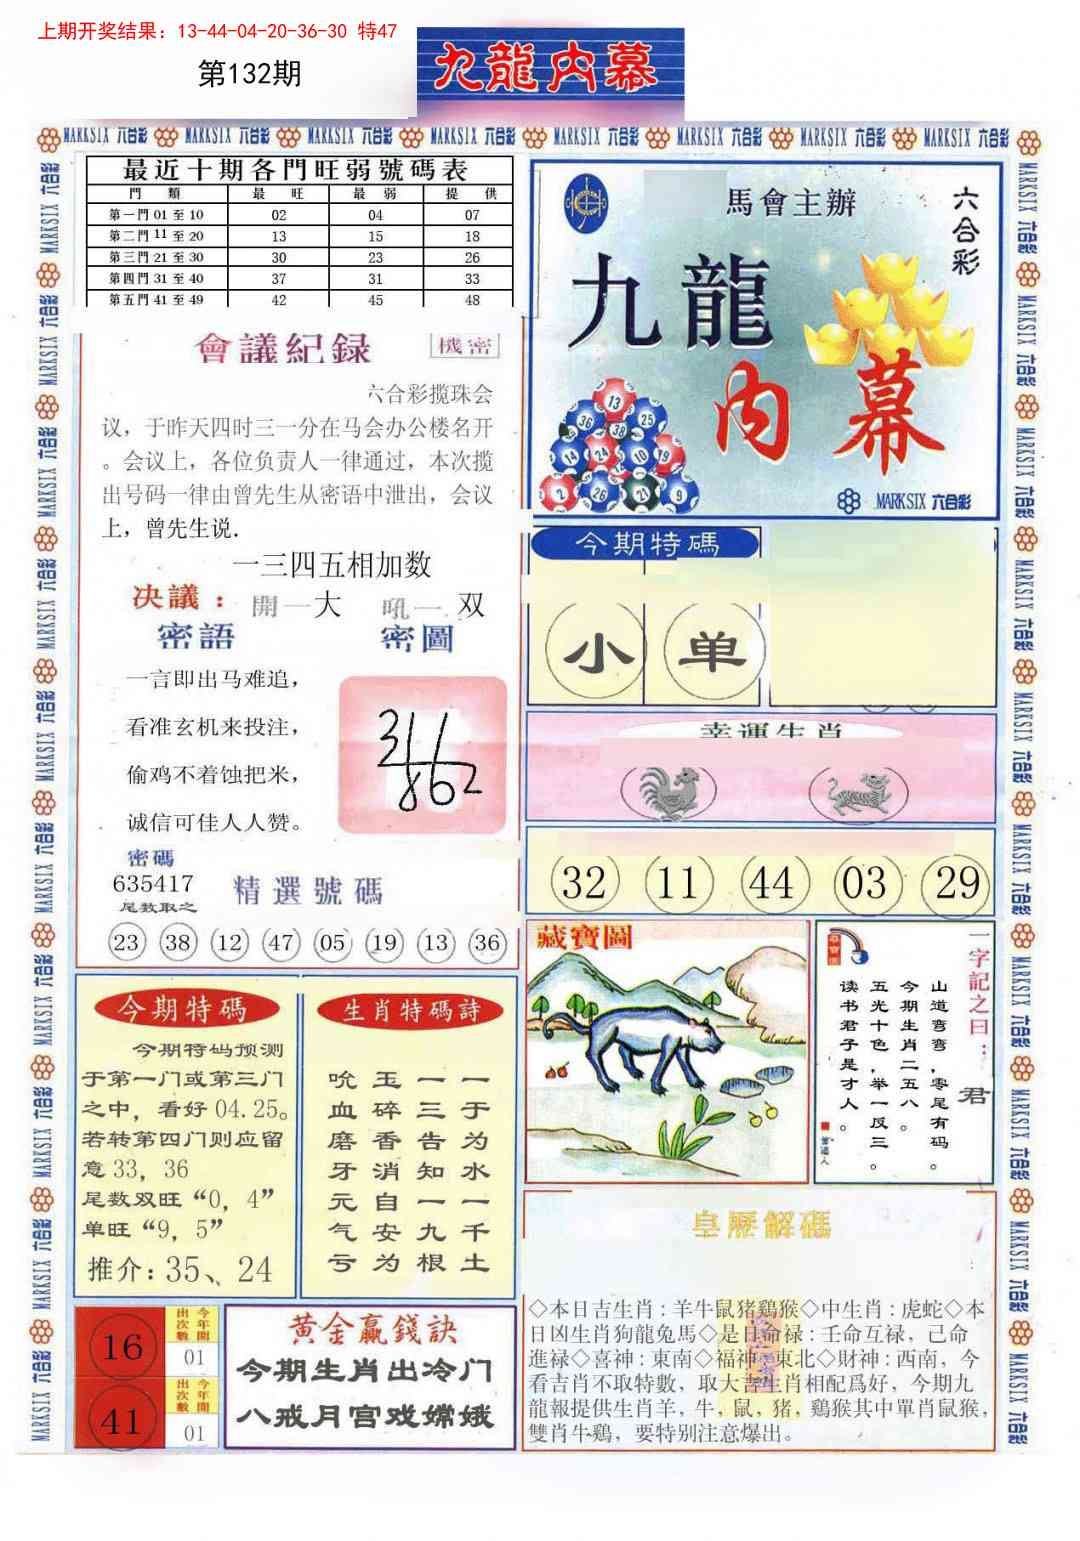 上期开奖结果：13-44-04-20-36-30 特47
第132期
九龍内幕
MARKSIX 六合彩 MARKSIX 六合彩 MARKSIX 六合彩 MARKSIX 六合彩 MARKSIX 六合彩 MARKSIX 六合彩 MARKSIX 六合彩 MARKSIX 六合彩
最近十期各門旺弱號碼表
門類 最旺 最弱 提供
第一門 01 至 10 02 04 07
第二門 11 至 20 13 15 18
第三門 21 至 30 30 23 26
第四門 31 至 40 37 31 33
第五門 41 至 49 42 45 48
會議紀録 機密
六合彩揽珠会
议，于昨天四时三一分在马会办公楼名开
。会议上，各位负责人一律通过，本次揽
出号码一律由曾先生从密语中泄出，会议
上，曾先生说.
一三四五相加数
决議： 開一大 吼一 双
密語 密圖
一言即出马难追，
看准玄机来投注，
偷鸡不着蚀把米，
诚信可佳人人赞。
密碼
635417
尾数取之
精選號碼
23 38 12 47 05 19 13 36
馬會主辦
六合彩
九龍
内幕
13
36 38 25
14 24 10 19
2 26 21 9
MARKSIX 六合彩
今期特碼
小 单
幸運生肖
32 11 44 03 29
藏寶圖
一字記之曰：君
山道弯弯，零尾有码。
今期生肖二五八。
五光十色，举一反三。
读书君子是才人。
今期特碼
今期特码预测
于第一门或第三门
之中，看好 04.25。
若转第四门则应留
意 33，36
尾数双旺“0，4”
单旺“9，5”
推介：35、24
生肖特碼詩
吮玉一一
血碎三于
磨香告为
牙消知水
元自一一
气安九千
亏为根土
皇歷解碼
◇本日吉生肖：羊牛鼠猪鷄猴◇中生肖：虎蛇◇本
日凶生肖狗龍兔馬◇是日命禄：壬命互禄，己命
進禄◇喜神：東南◇福神：東北◇財神：西南，今
看吉肖不取特數，取大吉生肖相配爲好，今期九
龍報提供生肖羊，牛，鼠，猪，鷄猴其中單肖鼠猴，
雙肖牛鷄，要特别注意爆出。
16 今年開出次數 01
41 今年開出次數 01
黄金贏錢訣
今期生肖出冷门
八戒月宫戏嫦娥